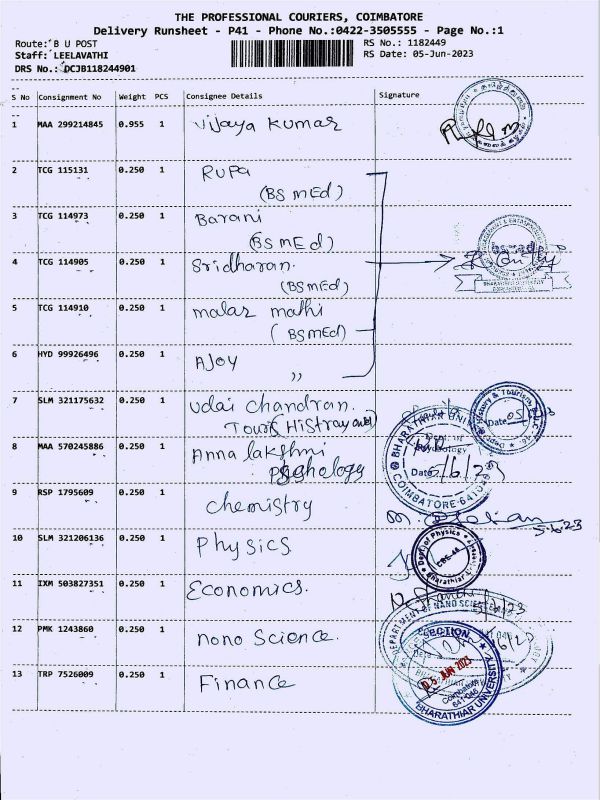 THE PROFESSIONAL COURIERS, COIMBATORE
Delivery Runsheet - P41 - Phone No.:0422-3505555 - Page No.:1
Route: B U POST
RS No.: 1182449
Staff: LEELAVATHI
RS Date: 05-Jun-2023
DRS No.: DCJB118244901
S No Consignment No Weight PCS Consignee Details Signature
1 MAA 299214845 0.955 1 Vijaya Kumar
2 TCG 115131 0.250 1 Rupa
(BSMEd)
3 TCG 114973 0.250 1 Barani
(BSMEd)
4 TCG 114905 0.250 1 Sridharan.
(BSMEd)
5 TCG 114910 0.250 1 malar mathi
(BSMEd)
6 HYD 99926496 0.250 1 AJOY
,,
7 SLM 321175632 0.250 1 Udai Chandran.
Date 05/
8 MAA 570245886 0.250 1 Anna lakshmi
Date 5/6/23
BHARATHIAR UNI
COIMBATORE-641046
9 RSP 1795609 0.250 1 Chemistry
5.6.23
10 SLM 321206136 0.250 1 Physics
Dept. of Physics
CBE-46
Bharathiar
11 IXM 503827351 0.250 1 Economics.
DEPARTMENT OF NANO SCIENCE
12 PMK 1243860 0.250 1 nono Science.
SECTION
05 JUN 2023
Coimbatore
641046
BHARATHIAR UNIVERSITY
13 TRP 7526009 0.250 1 Finance